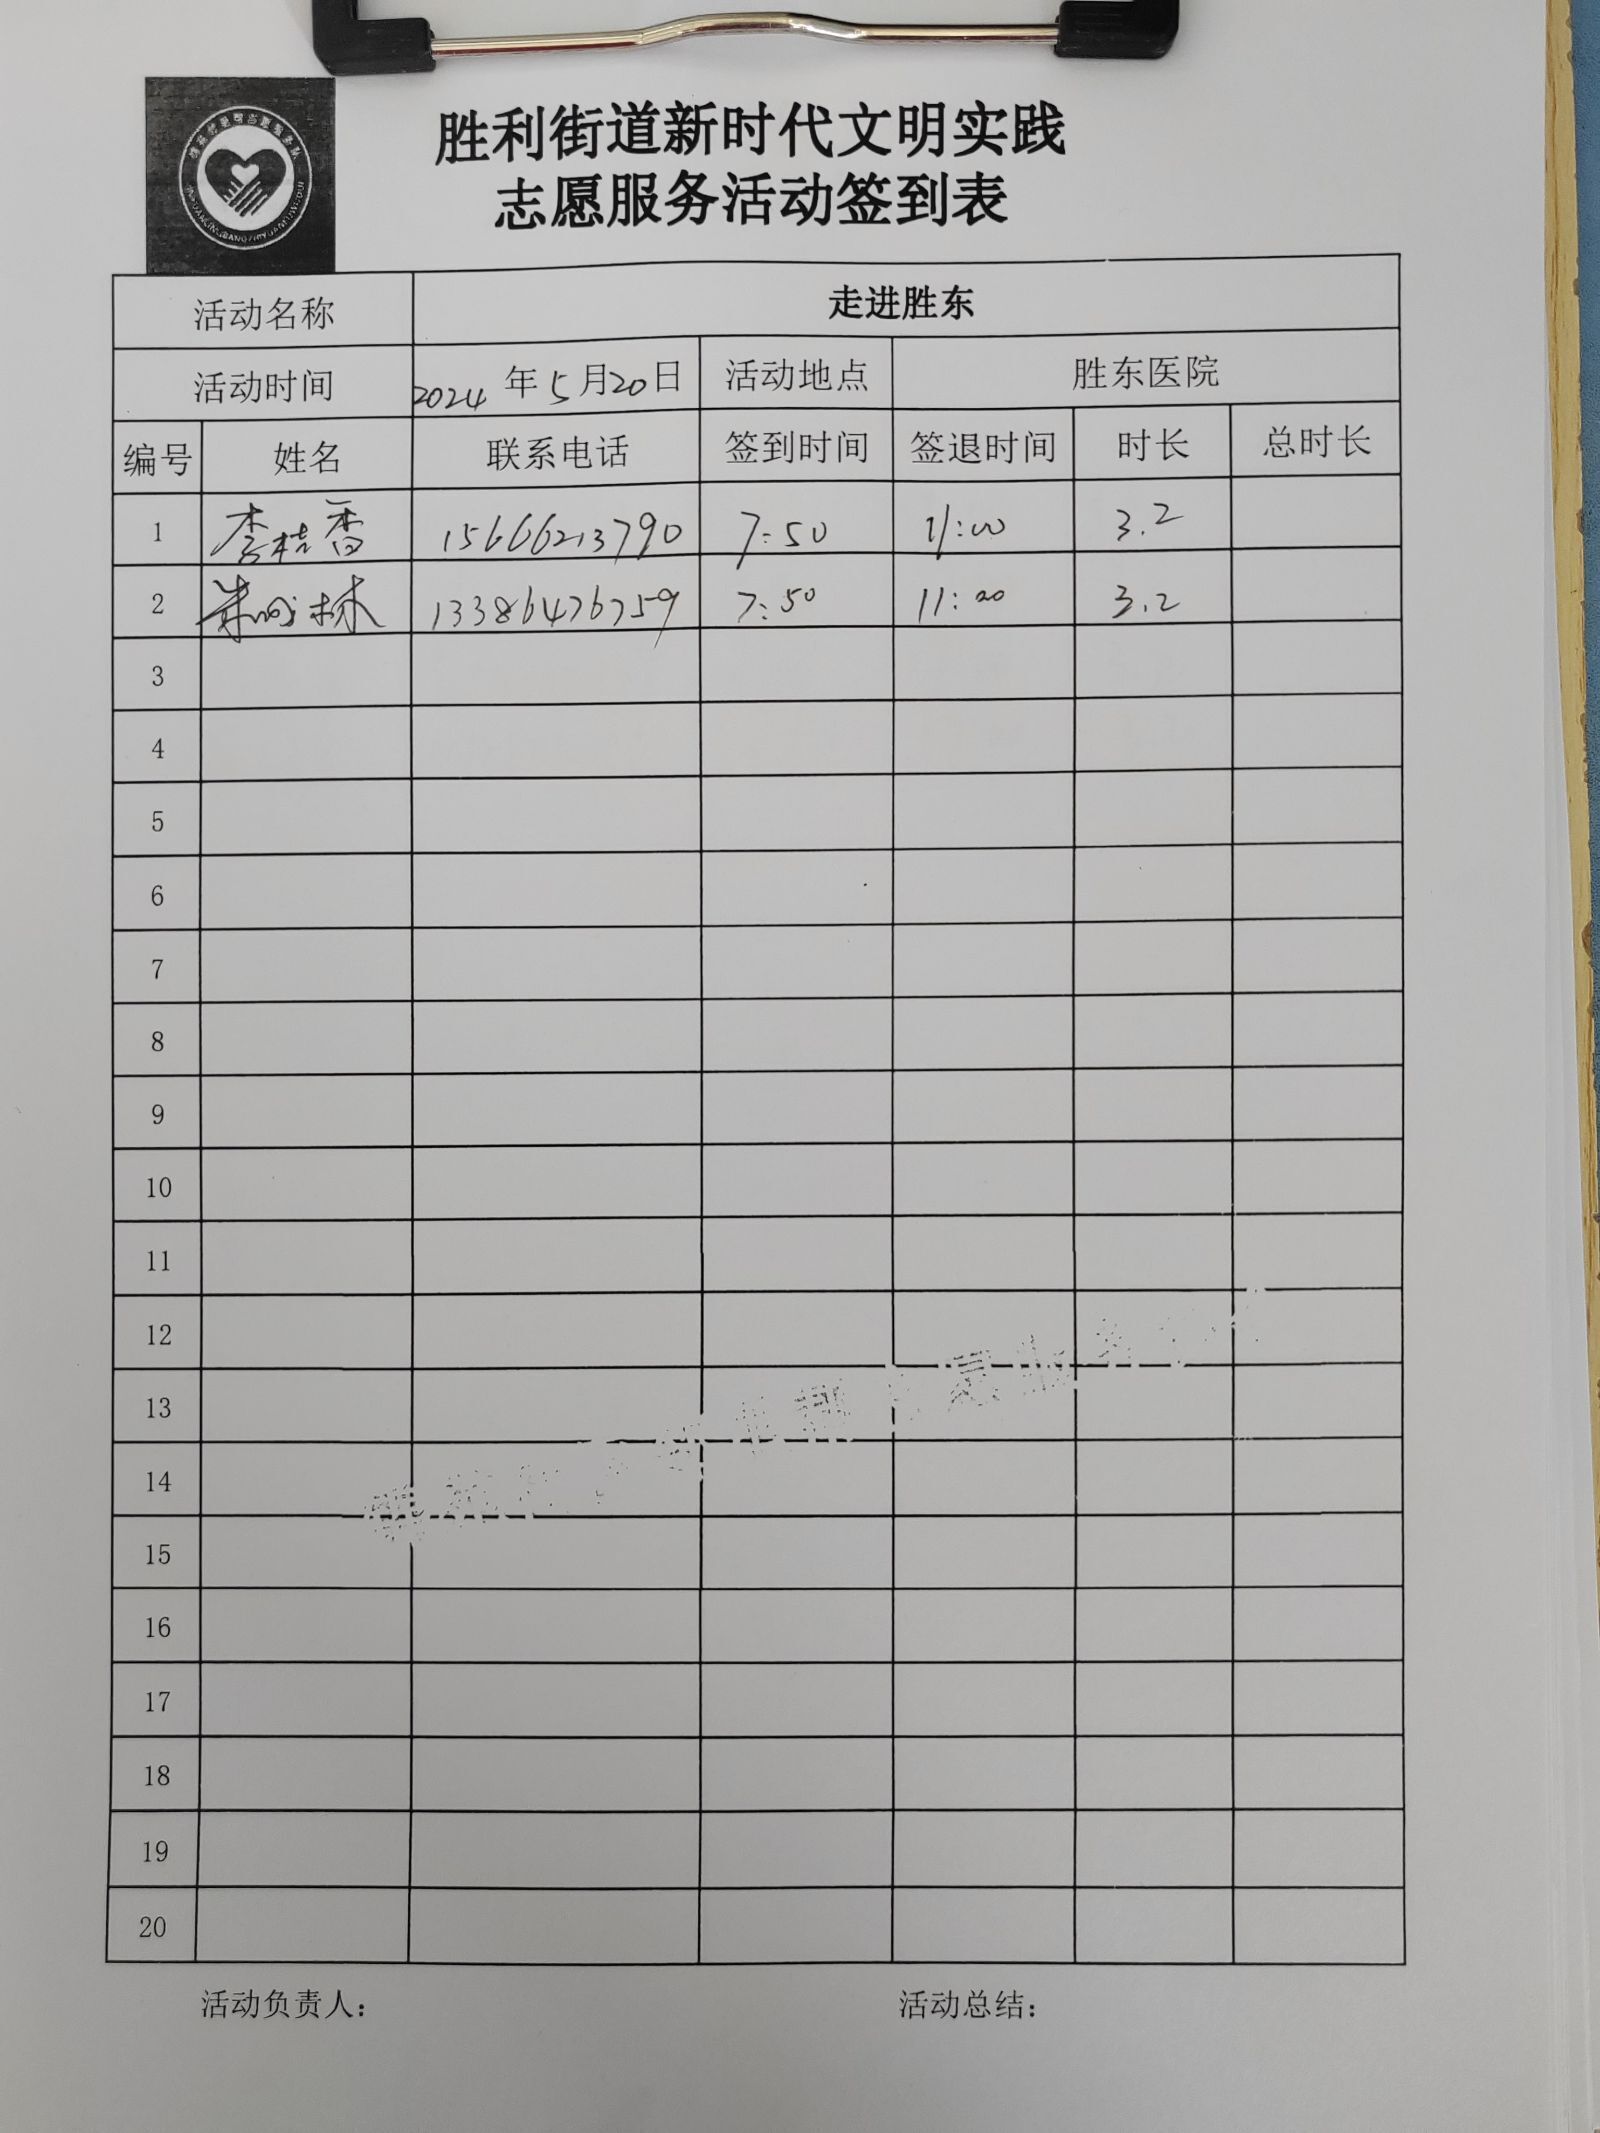 胜利街道新时代文明实践
志愿服务活动签到表
活动名称 走进胜东
活动时间 2024 年 5 月 20 日 活动地点 胜东医院
编号 姓名 联系电话 签到时间 签退时间 时长 总时长
1 李桂香 15666213790 7:50 11:00 3.2
2 朱 林 13386476759 7:50 11:00 3.2
3
4
5
6
7
8
9
10
11
12
13
14
15
16
17
18
19
20
活动负责人： 活动总结：